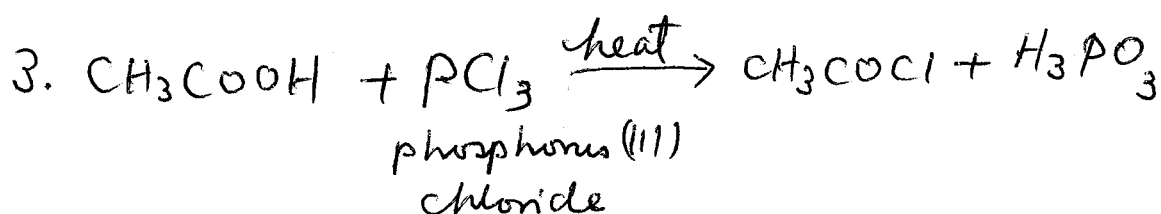 3. CH₃COOH + PCl₃ heat→ CH₃COCl + H₃PO₃
phosphorus (III)
chloride